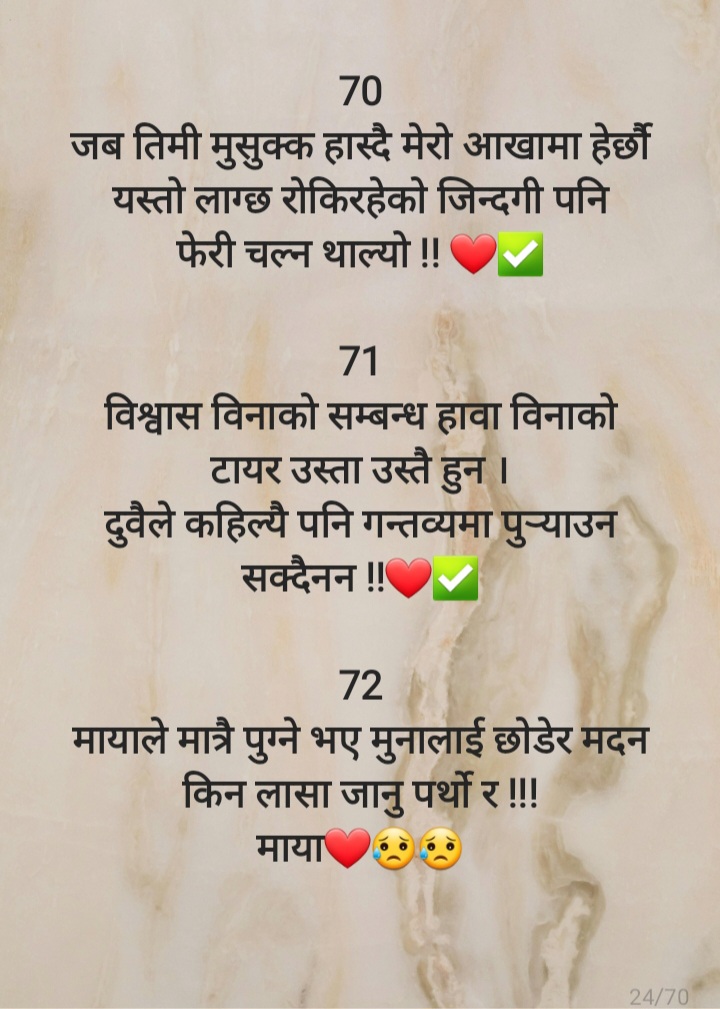 70
जब तिमी मुसुक्क हास्दै मेरो आखामा हेर्छौ
यस्तो लाग्छ रोकिरहेको जिन्दगी पनि
फेरी चल्न थाल्यो !! ❤️✅
71
विश्वास विनाको सम्बन्ध हावा विनाको
टायर उस्ता उस्तै हुन ।
दुवैले कहिल्यै पनि गन्तव्यमा पुऱ्याउन
सक्दैनन !!❤️✅
72
मायाले मात्रै पुग्ने भए मुनालाई छोडेर मदन
किन लासा जानु पर्थो र !!!
माया❤️😥😥
24/70